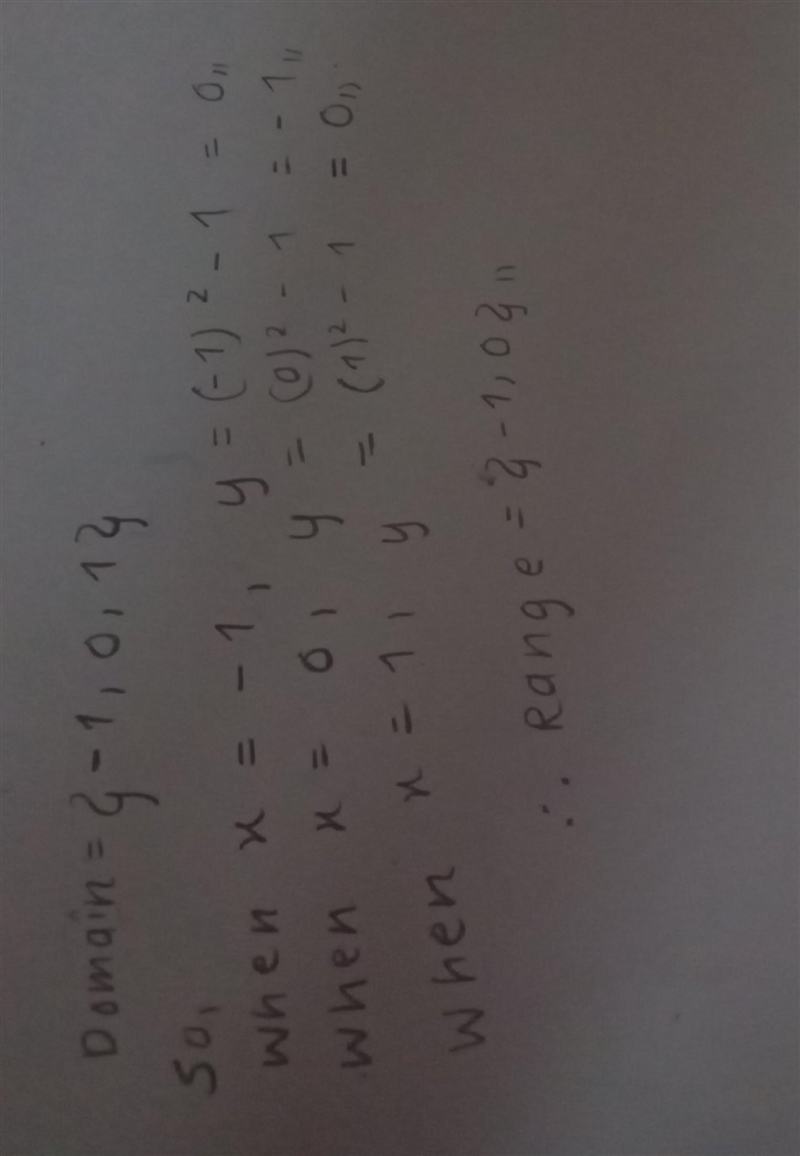 Domain = {-1, 0, 1}
So,
when x = -1, y = (-1)² - 1 = 0,,
when x = 0, y = (0)² - 1 = -1,,
when x = 1, y = (1)² - 1 = 0,,
∴ Range = {-1, 0},,